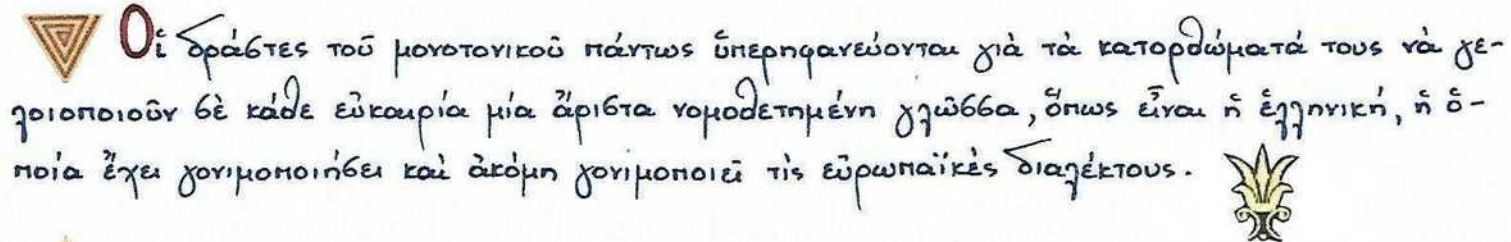 Οἱ δράστες τοῦ μονοτονικοῦ πάντως ὑπερηφανεύονται γιὰ τὰ κατορθώματά τους νὰ γε-
λοιοποιοῦν σὲ κάθε εὐκαιρία μία ἄριστα νομοθετημένη γλῶσσα, ὅπως εἶναι ἡ ἑλληνική, ἡ ὁ-
ποία ἔχει γονιμοποιήσει καὶ ἀκόμη γονιμοποιεῖ τὶς εὐρωπαϊκὲς διαλέκτους.